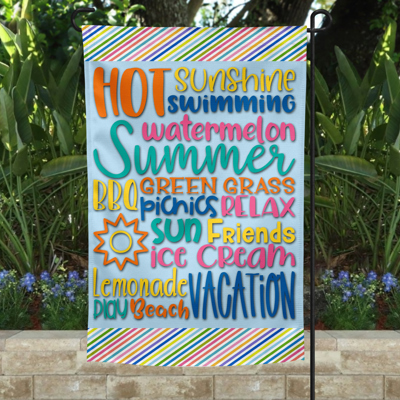 HOT sunshine
swimming
watermelon
Summer
BBQ GREEN GRASS
picnics RELAX
sun Friends
ice Cream
Lemonade
play Beach VACATION